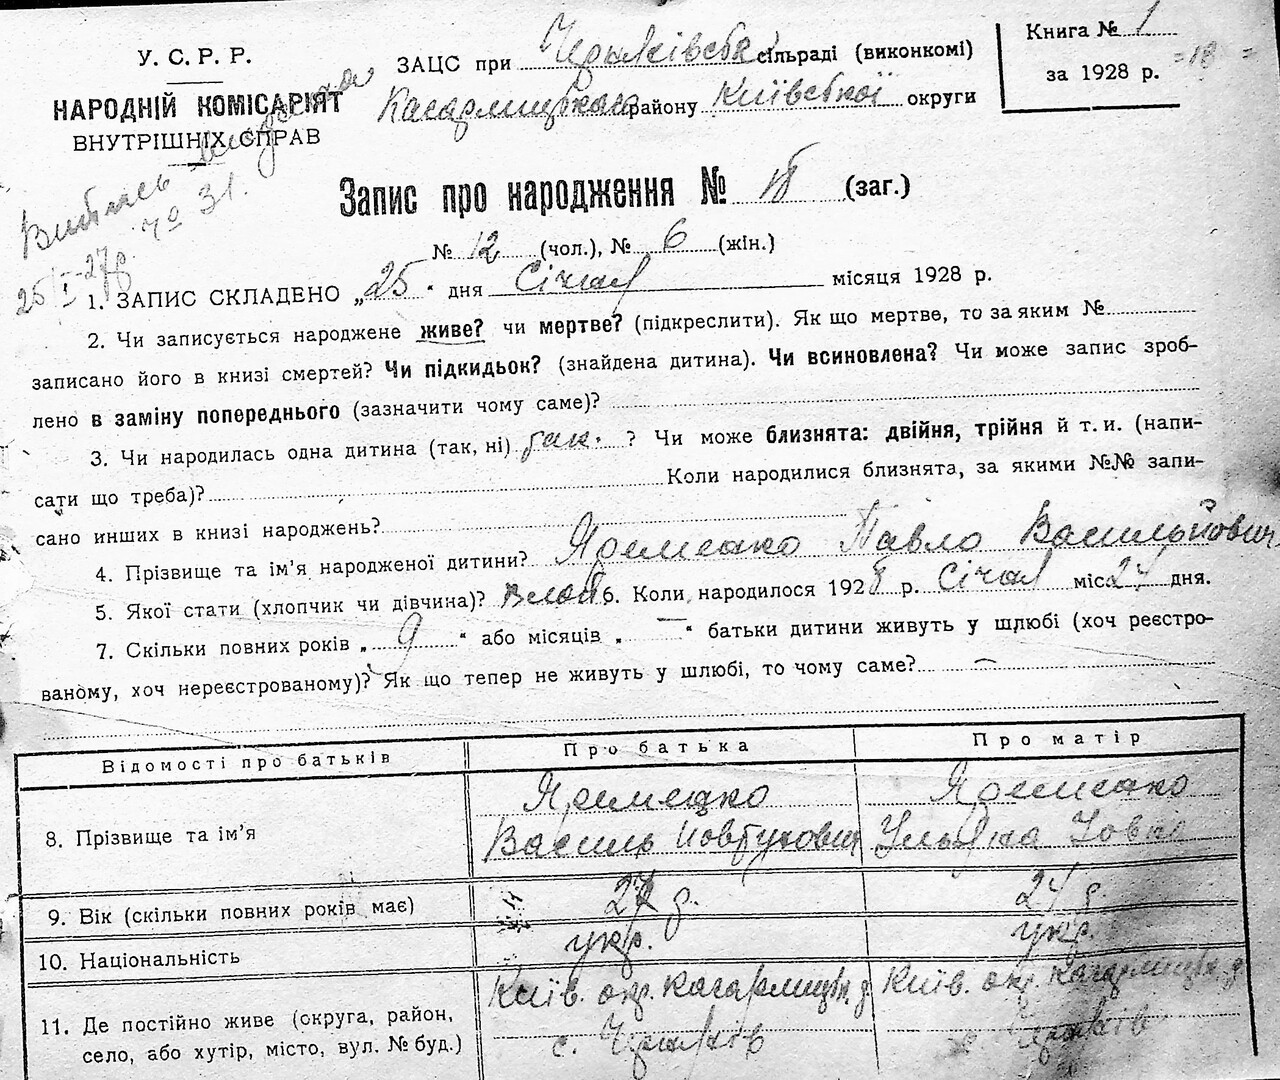 У. С. Р. Р.
НАРОДНІЙ КОМІСАРІЯТ
ВНУТРІШНІХ СПРАВ
ЗАЦС при сільраді (виконкомі)
Кагарлицького району Київської округи
Книга № 1
за 1928 р.
=18=
Запис про народження № 18 (заг.)
№ 12 (чол.), № 6 (жін.)
№ 31.
1. ЗАПИС СКЛАДЕНО „25“ дня Січня місяця 1928 р.
2. Чи записується народжене живе? чи мертве? (підкреслити). Як що мертве, то за яким №
записано його в книзі смертей? Чи підкидьок? (знайдена дитина). Чи всиновлена? Чи може запис зроб-
лено в заміну попереднього (зазначити чому саме)?
3. Чи народилась одна дитина (так, ні) так. ? Чи може близнята: двійня, трійня й т. и. (напи-
сати що треба)? Коли народилися близнята, за якими №№ запи-
сано инших в книзі народжень?
4. Прізвище та ім’я народженої дитини? Яременко Павло Васильйович
5. Якої стати (хлопчик чи дівчина)? 6. Коли народилося 1928 р. Січня міс. 24 дня.
7. Скільки повних років „9“ або місяців „—“ батьки дитини живуть у шлюбі (хоч реєстро-
ваному, хоч нереєстрованому)? Як що тепер не живуть у шлюбі, то чому саме? —
Відомості про батьків Про батька Про матір
8. Прізвище та ім’я Яременко Василь Яременко Уляна
9. Вік (скільки повних років має) 27 р. 24 р.
10. Національність укр. укр.
11. Де постійно живе (округа, район,
село, або хутір, місто, вул. № буд.) Київ. окр. Кагарлицьк. р. с. Київ. окр. Кагарлицьк. р.